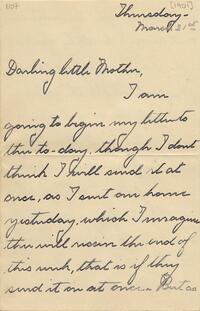 1107
[1901]
Thursday-
March 21st
Darling little Mother,
I am
going to begin my letter to
you to-day, though I dont
think I will send it at
once, as I sent one home
yesterday, which I imagine
you will receive the end of
this week, that is if they
send it on at once. But as